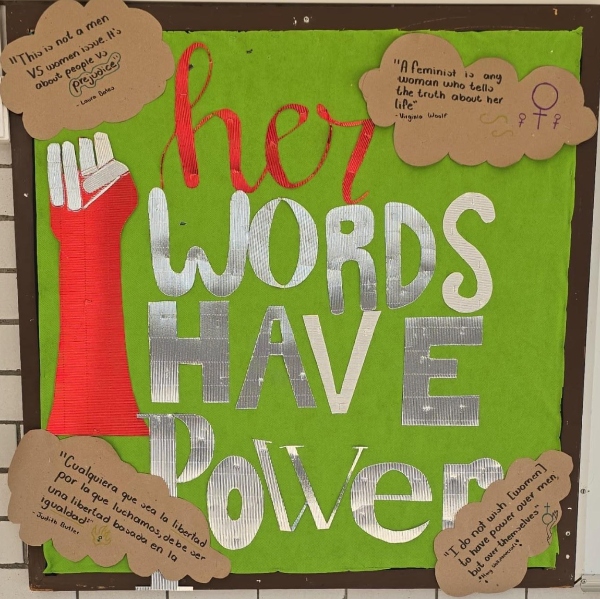 "This is not a men
VS women issue. It's
about people vs
prejudice"
- Laura Bates
"A feminist is any
woman who tells
the truth about her
life"
- Virginia Woolf
her
WORDS
HAVE
Power
"Cualquiera que sea la libertad
por la que luchamos, debe ser
una libertad basada en la
igualdad"
- Judith Butler
"I do not wish [women]
to have power over men,
but over themselves"